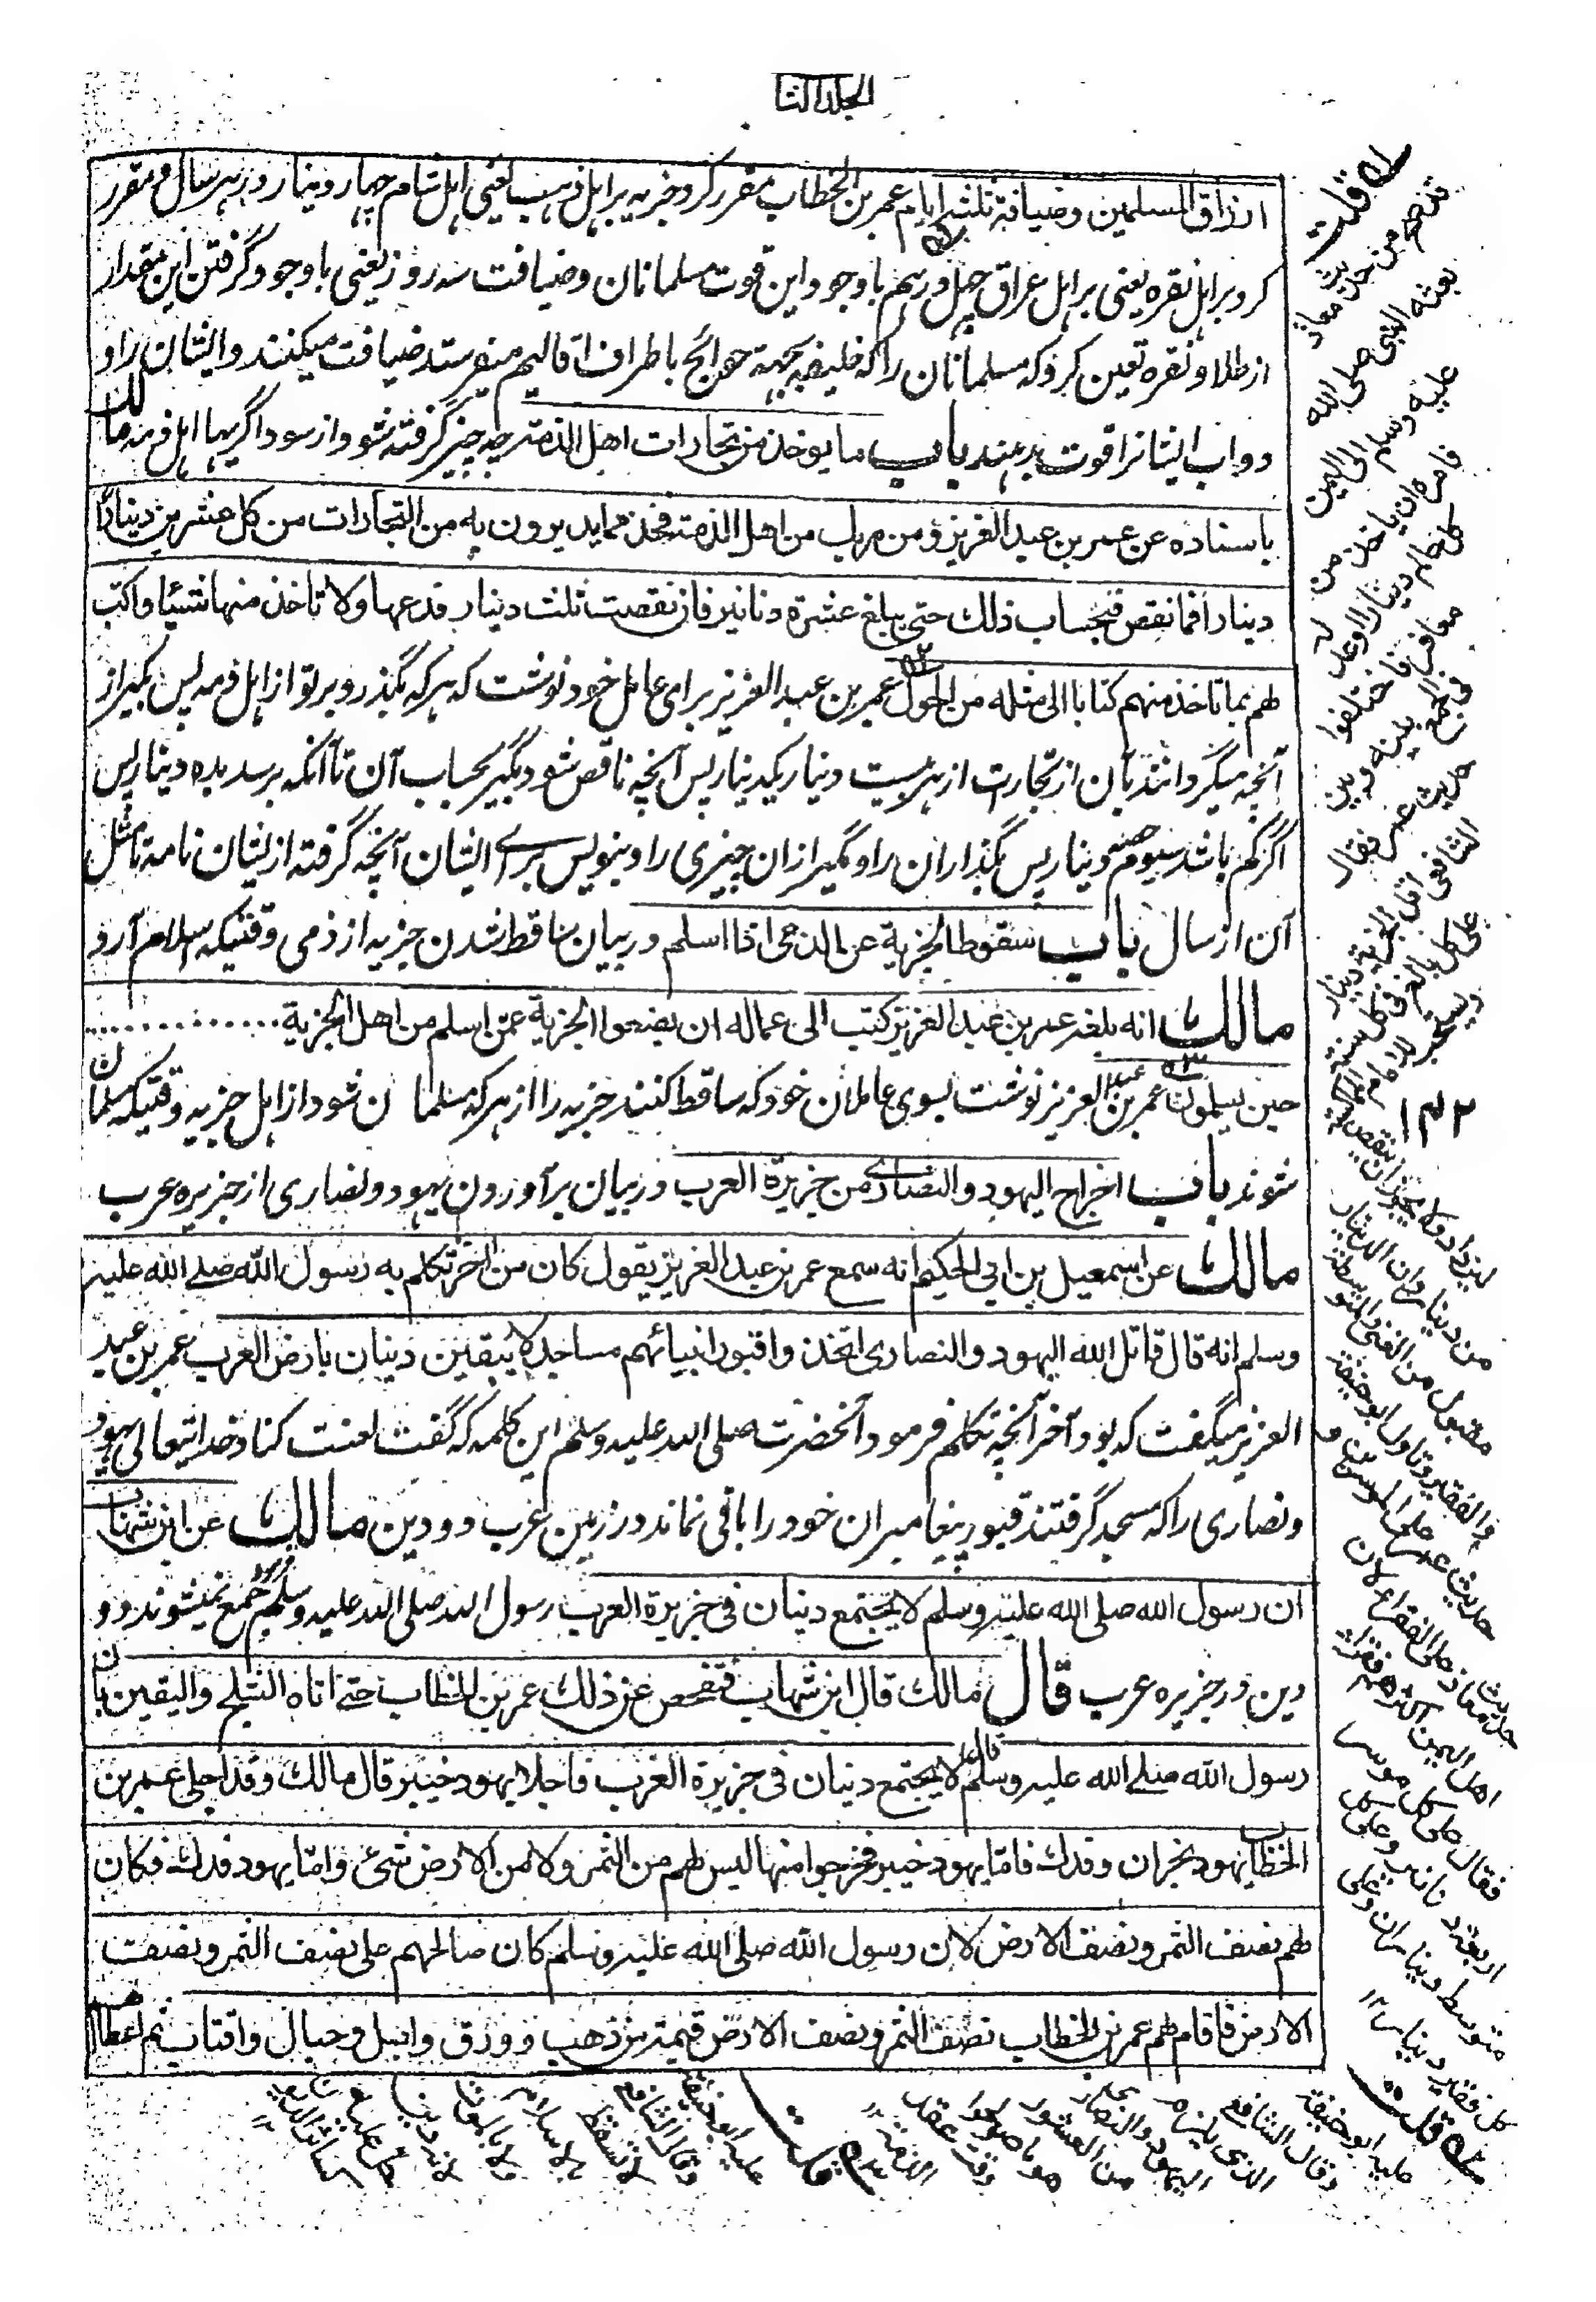 الجلد الثا
ارزاق المسلمين وضيافة ثلثة ايام عمر بن الخطاب مقرر كرد جزيه بر اهل ذهب يعنى اهل شام چهار دينار در هر سال و مقرر
كرد بر اهل نقره يعنى بر اهل عراق چهل درهم با وجود اين قوت مسلمانان وضيافت سه روز يعنى باوجود گرفتن اين مقدار
از طلا و نقره تعين كرد كه مسلمانان را كه خليفه بجهة حوائج باطراف اقاليم ميفرستد ضيافت ميكنند و ايشان را و
دواب ايشانرا قوت بدهند باب ما يوخذ من تجارات اهل الذمة چه چيز گرفته شود از سوداگريها اهل ذمه مالك
باسناده عن عمر بن عبد العزيز ومن مر بك من اهل الذمة فخذ مما يديرون به من التجارات من كل عشرين دينارا
دينارا فما نقص فبحساب ذلك حتى يبلغ عشرة دنانير فان نقصت ثلث دينار فدعها ولا تاخذ منها شيئا واكتب
لهم بما تاخذ منهم كتابا الى مثله من الحول عمر بن عبد العزيز براى عامل خود نوشت كه هر كه بگذرد بر تو از اهل ذمه پس بگير از
آنچه ميگردانند بآن از تجارت از هر بيست دينار يكدينار پس آنچه ناقص شود بگير بحساب آن تا آنكه برسد بده دينار پس
اگر كم باشد سيوم حصه دينار پس بگذار آن را و مگير ازان چيزى را و بنويس براے ايشان آنچه گرفته از يشان نامه تا مثل
آن از سال باب سقوط الجزية عن الذمى اذا اسلم در بيان ساقط شدن جزيه از ذمى وقتيكه اسلام آرد
مالك انه بلغه عمر بن عبد العزيز كتب الى عماله ان يضعوا الجزية عمن اسلم من اهل الجزية
حين يسلمون عمر بن عبد العزيز نوشت بسوى عاملان خود كه ساقط كنند جزيه را از هر كه مسلمان شود از اهل جزيه وقتيكه مسلمان
شوند باب اخراج اليهود والنصارے من جزيرة العرب در بيان برآوردن يهود و نصارى از جزيره عرب
مالك عن اسمعيل بن ابى الحكيم انه سمع عمر بن عبد العزيز يقول كان من آخر ما تكلم به رسول الله صلے الله عليه
وسلم انه قال قاتل الله اليهود والنصارى اتخذوا قبور انبيائهم مساجد لا يبقين دينان بارض العرب عمر بن عبد
العزيز ميگفت كه بود آخر آنچه تكلم فرمود آنحضرت صلى الله عليه وسلم اين كلمه كه گفت لعنت كناد خداتيعالى يهود
ونصارى را كه مسجد گرفتند قبور پيغامبران خود را باقى نماند در زمين عرب دو دين مالك عن ابن شهاب
ان رسول الله صلى الله عليه وسلم لا يجتمع دينان فى جزيرة العرب رسول الله صلى الله عليه وسلم فرمود جمع نميشوند دو
دين در جزيره عرب قال مالك قال ابن شهاب فتفحص عن ذلك عمر بن الخطاب حتے اتاه الثلج واليقين ان
رسول الله صلے الله عليه وسلم قال لا يجتمع دينان فى جزيرة العرب فاجلا يهود خيبر قال مالك وقد اجلى عمر بن
الخطاب يهود نجران وفدك فاما يهود خيبر فخرجوا منها ليس لهم من الثمر ولا من الارض شئ واما يهود فدك فكان
لهم نصف الثمر ونصف الارض لان رسول الله صلى الله عليه وسلم كان صالحهم على نصف الثمر ونصف
الارض فاقام لهم عمر بن الخطاب نصف الثمر ونصف الارض قيمة من ذهب وورق وابل وحبال واقتاب ثم اعطاهم
قلت
قد صح من حديث معاذ
بعثه النبى صلى الله
عليه وسلم الى اليمن
فامره ان ياخذ من
كل حالم دينارا او عدله
معافر فاختلفوا
فى الجمع بينه وبين
حديث عمر فقال
الشافعى اقل الجزية دينار
على كل بالغ فى كل سنة
ويستحب للامام
١٣٢
يزداد ولا يجوز ان ينقص
من دينار وان الدينار
مقبول من الغنى والمتوسط
والفقير وتاول ابو حنيفة
حديث عمر على الموسرين و
حديث معاذ على الفقراء لان
اهل اليمن اكثرهم فقراء
فقال على كل موسر
اربعة دنانير وعلى كل
متوسط ديناران وعلى
كل فقير دينار ١٢
قلت
عليه ابو حنيفة
وقال الشافعى
الذى يلزم
اليهود والنصارى
من العشور
هو ما صولحوا
وقت عقد
الذمة ١٢
قلت
عليه ابو حنيفة
وقال الشافعى
لا تسقط
بالاسلام